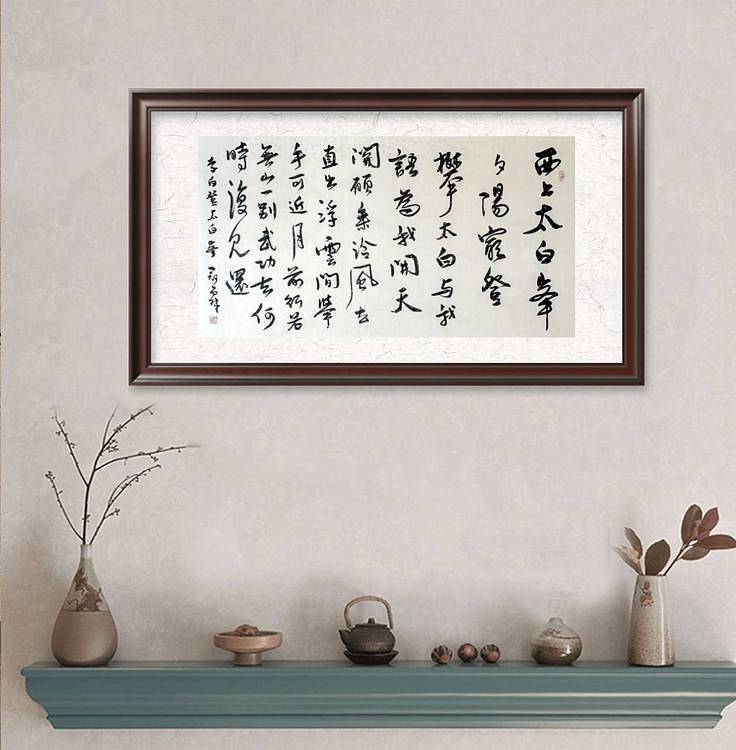 西上太白峯
夕陽窮登
攀太白与我
語為我開天
関願乘泠風去
直出浮雲間舉
手可近月前行若
無山一别武功去何
時復見還
李白登太白峯